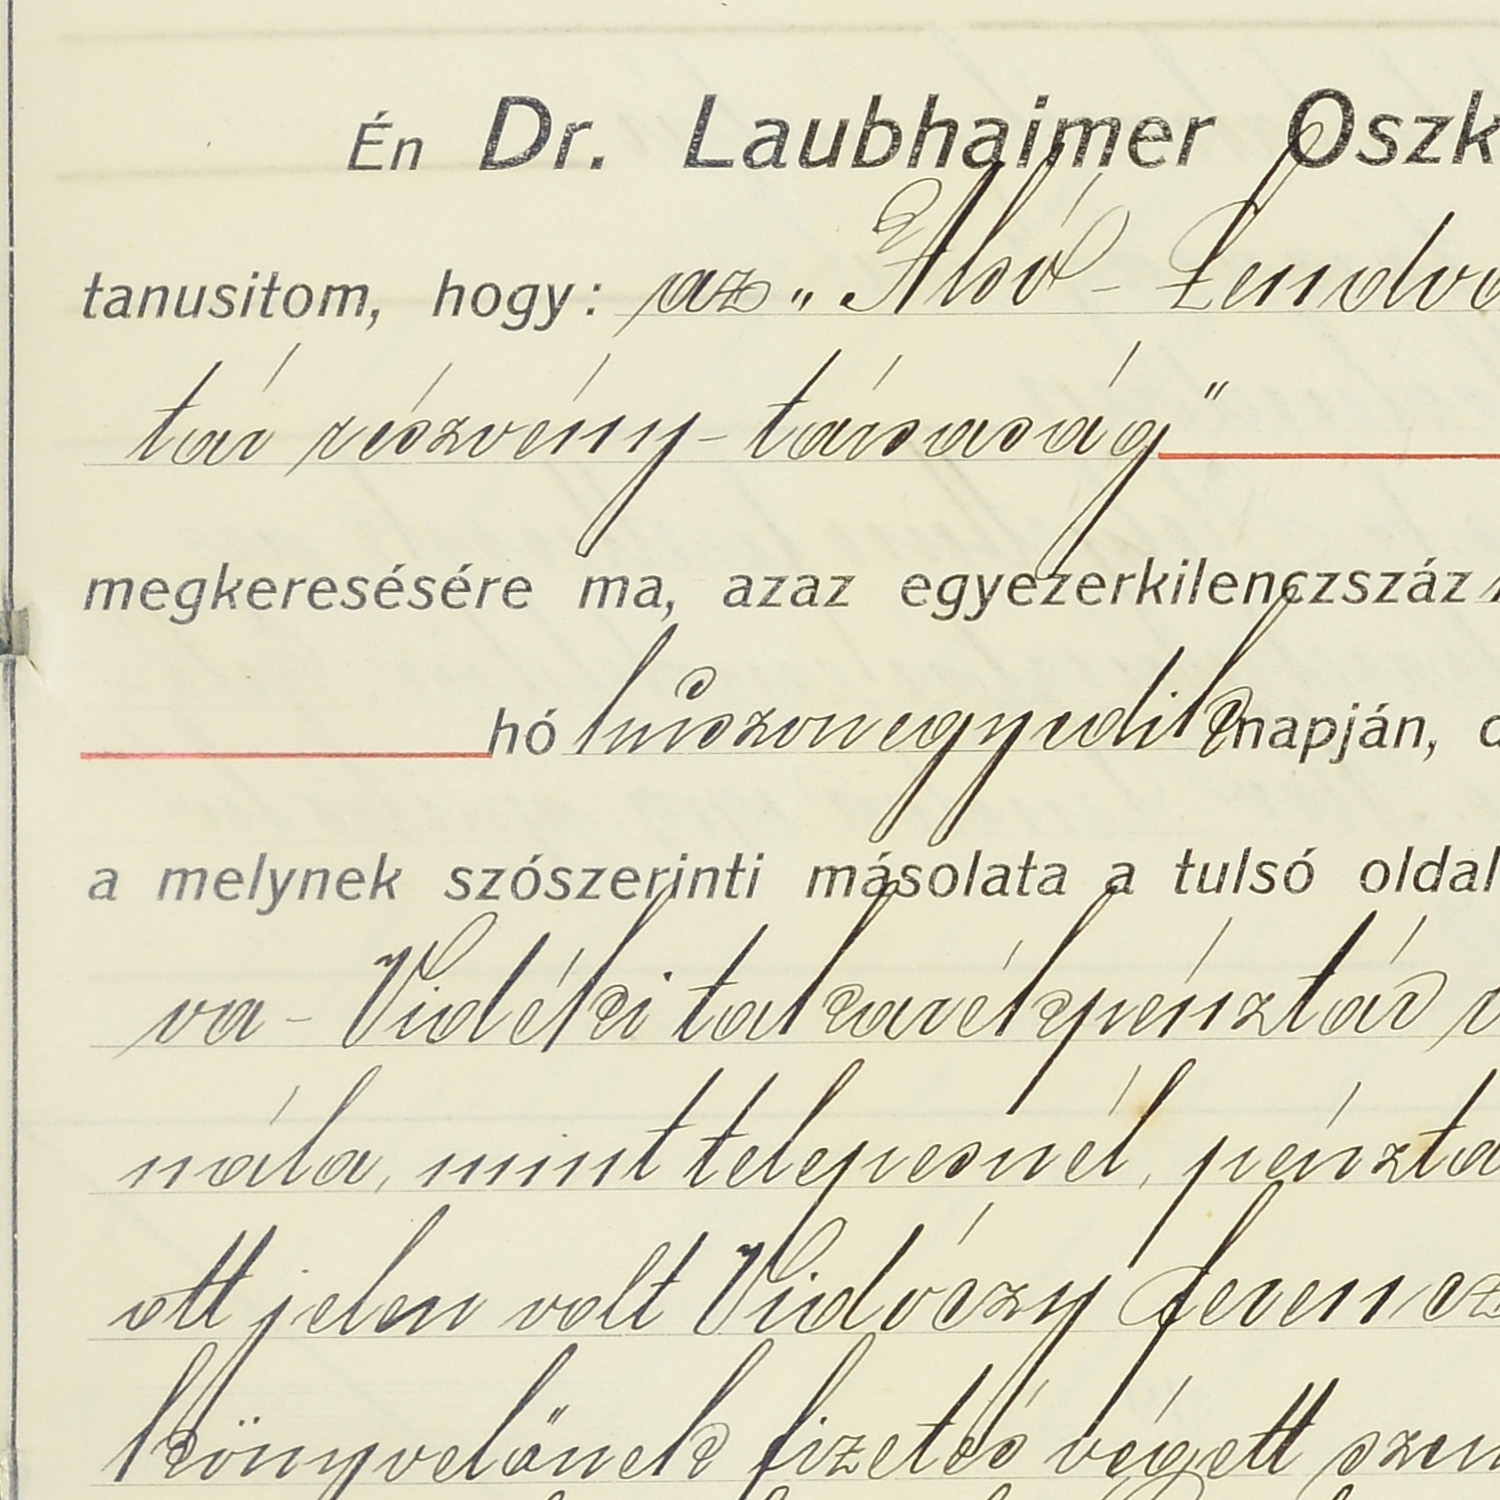 Én Dr. Laubhaimer Oszk
tanusitom, hogy: az „Alsó-Lendva
tár részvény-társaság"
megkeresésére ma, azaz egyezerkilenczszáz
hó húszonegyedik napján, d
a melynek szószerinti másolata a tulsó oldal
va-Vidéki takarékpénztár r
nála, mint telepesnél, pénztá
ott jelen volt Vidóczy Ferencz
könyvelőnek fizetés végett szem